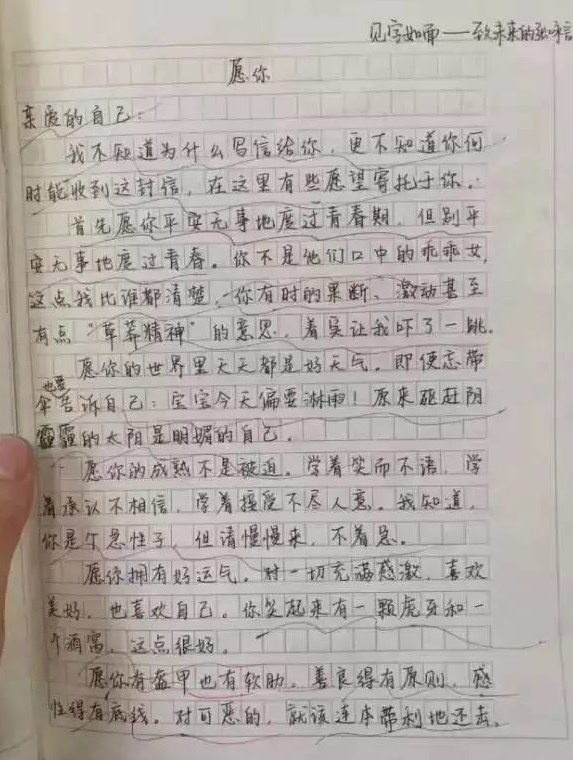 见字如面——致未来的张咏言
愿你
亲爱的自己:
我不知道为什么写信给你,更不知道你何
时能收到这封信,在这里有些愿望寄托于你。
首先愿你平安无事地度过青春期,但别平
安无事地度过青春。你不是他们口中的乖乖女,
这点我比谁都清楚,你有时的果断、激动甚至
有点“草莽精神”的意思,着实让我吓了一跳。
愿你的世界里天天都是好天气,即便忘带
伞也要告诉自己:宝宝今天偏要淋雨!原来驱赶阴
霾的太阳是明媚的自己。
愿你的成熟不是被迫,学着笑而不语,学
着承认不相信,学着接受不尽人意。我知道,
你是个急性子,但请慢慢来,不着急。
愿你拥有好运气。对一切充满感激,喜欢
美好,也喜欢自己。你笑起来有一颗虎牙和一
个酒窝,这点很好。
愿你有盔甲也有软肋,善良得有原则,感
性得有底线。对可恶的,就该连本带利地还去。